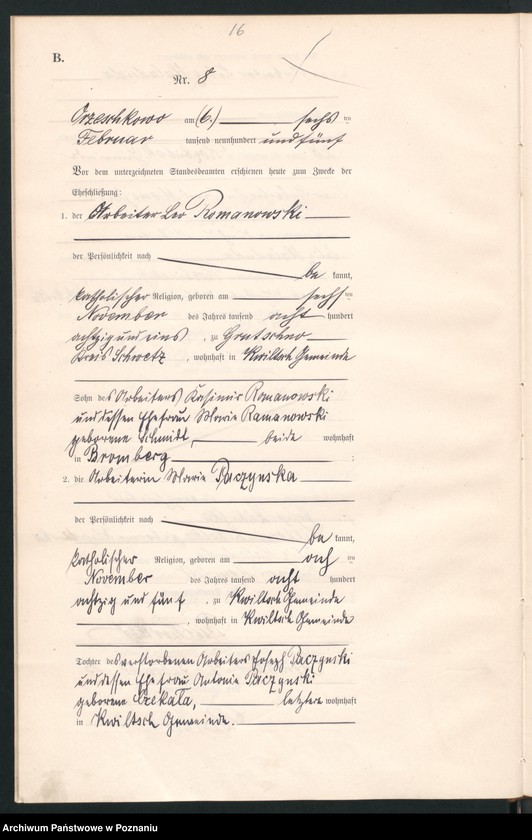 16
B.
Nr. 8
Orzeschkowo am (6.) sechs ten
Februar tausend neunhundert und fünf
Vor dem unterzeichneten Standesbeamten erschienen heute zum Zwecke der
Eheschließung:
1. der Arbeiter Leo Romanowski
der Persönlichkeit nach
be kannt,
katholischer Religion, geboren am sechs ten
November des Jahres tausend acht hundert
achtzig und eins , zu
Kreis Schwetz , wohnhaft in Kwiltsch Gemeinde
Sohn des Arbeiters Kasimir Romanowski
und dessen Ehefrau Marie Romanowski
geborene Schmidt, beide wohnhaft
in Bromberg ;
2. die Arbeiterin Marie Paczynska
der Persönlichkeit nach
be kannt,
katholischer Religion, geboren am ach ten
November des Jahres tausend acht hundert
achtzig und fünf , zu Kwiltsch Gemeinde
, wohnhaft in Kwiltsch Gemeinde
Tochter des verstorbenen Arbeiters Joseph Paczynski
und dessen Ehefrau Antonie Paczynski
geborene letztere wohnhaft
in Kwiltsch Gemeinde.
Archiwum Państwowe w Poznaniu